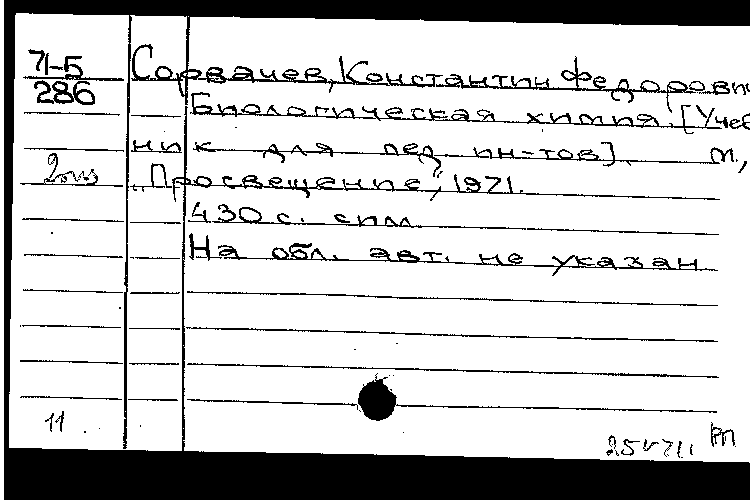 71-5
286
Сорвачев, Константин Федорович
Биологическая химия. [Учеб
ник для пед. ин-тов]. М.,
„Просвещение", 1971.
430 с. с илл.
На обл. авт. не указан
11
25 V 71